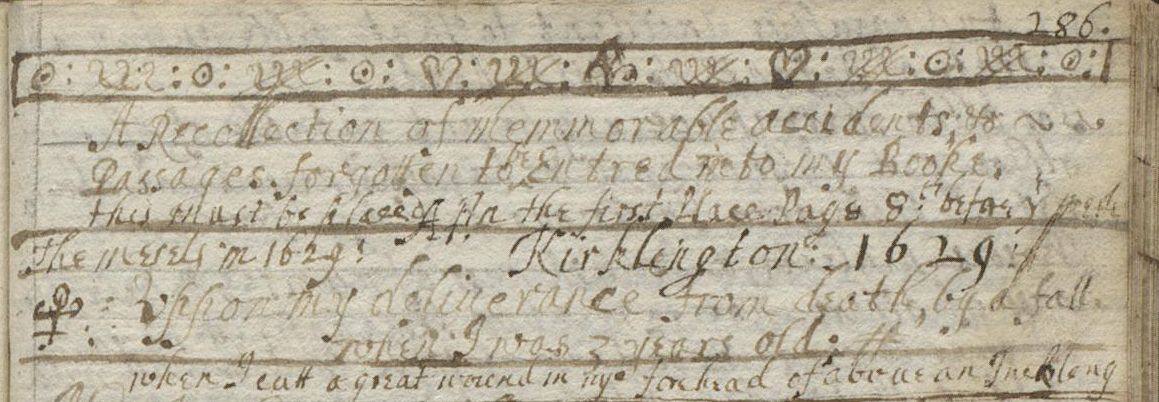 286.
A Recollection of memmorable accidents, &
Passages. forgotten to bee Entred into my Booke.
this must be placed In the first Place Page 8th before I
the mesels in 1629: Kirklington: 1629:
Uppon my deliverance from death, by a fall.
when I was 3 years old:
when I cutt a great wound in my forehead of above an Inch long